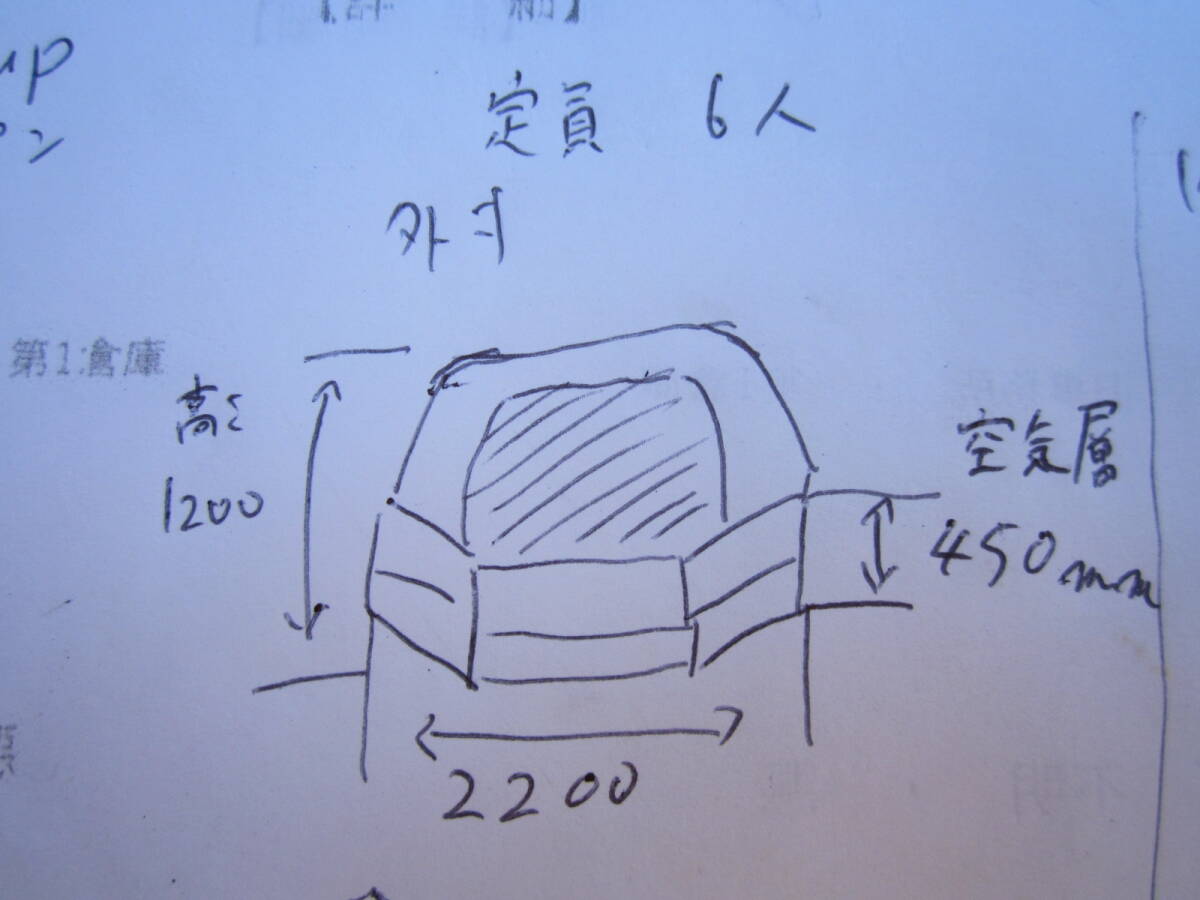 定員 6人
外寸
第1倉庫
高さ
1200
空気層
450mm
2200